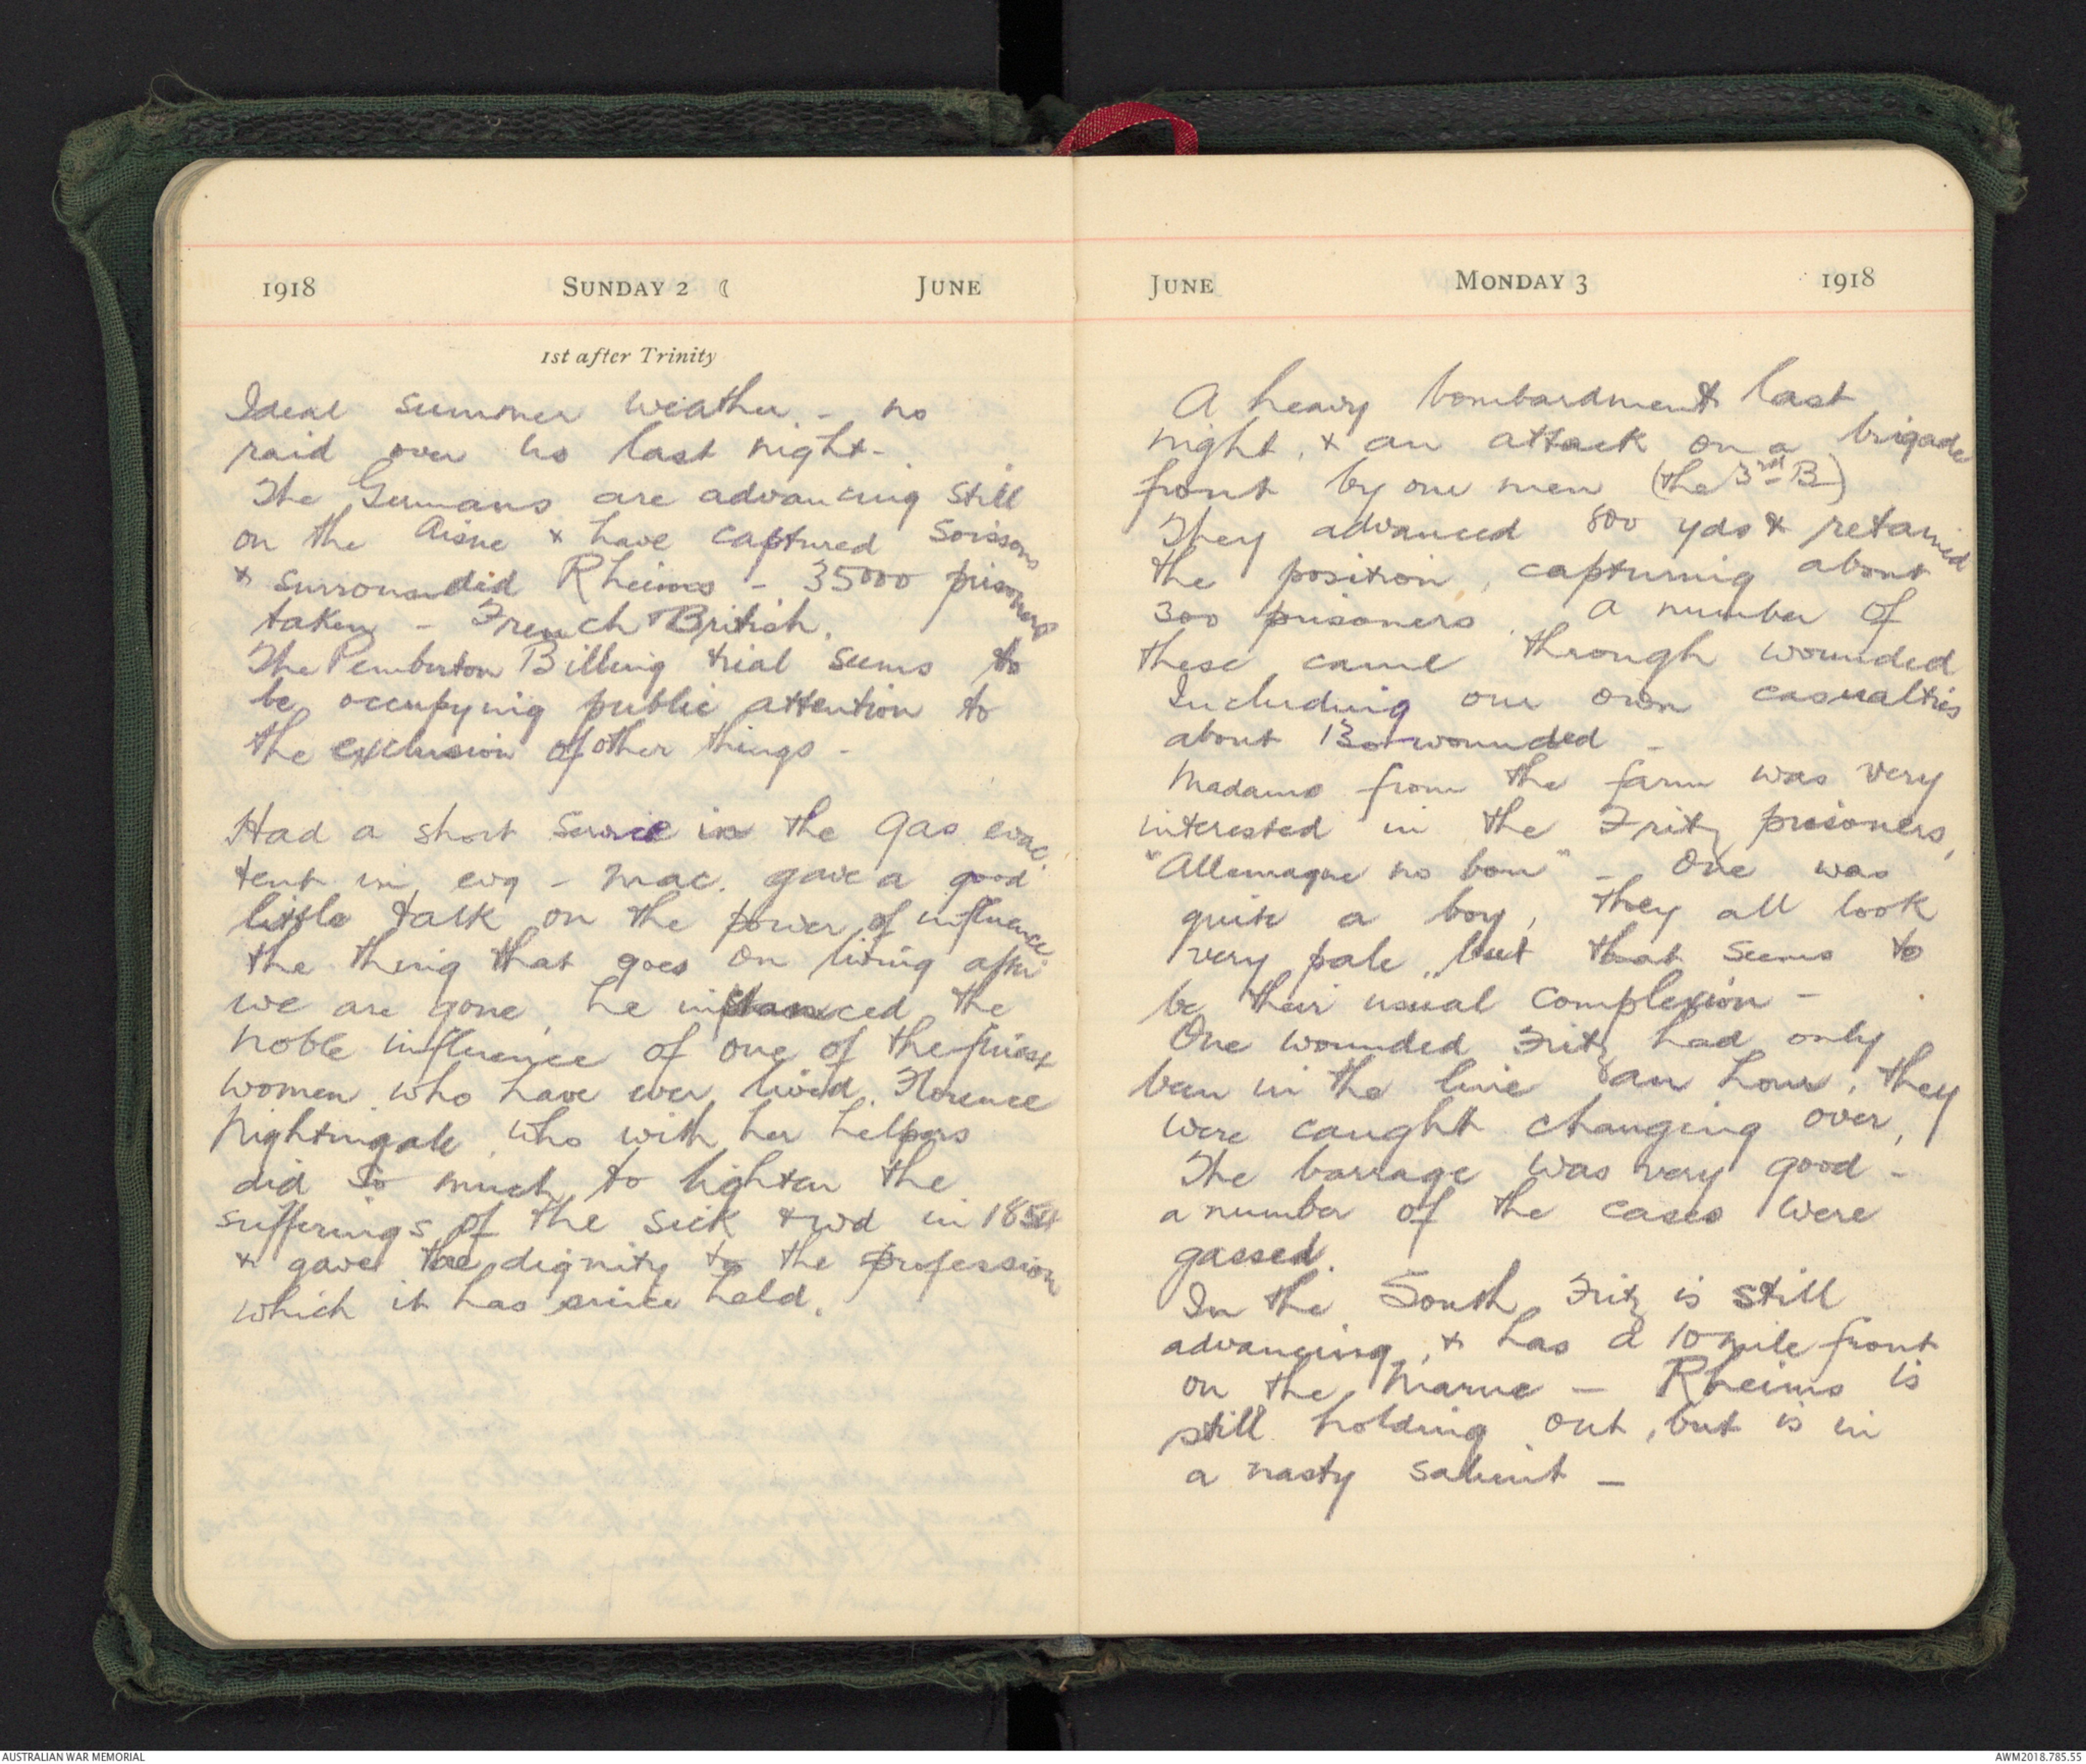 1918 SUNDAY 2 ☾ JUNE
1st after Trinity
Ideal summer weather - no
raid over us last night.
The Germans are advancing still
on the Aisne & have captured Soissons
& surrounded Rheims - 35000 prisoners
taken - French & British.
The Pemberton Billing trial seems to
be occupying public attention to
the exclusion of other things -
Had a short service in the gas evac.
tent in evg - Mac. gave a good
little talk on the power of influence
the thing that goes on living after
we are gone, he instanced the
noble influence of one of the finest
women who have ever lived. Florence
Nightingale, who with her helpers
did so much to lighten the
sufferings of the sick & wd in 1854
& gave the dignity to the profession
which it has since held.
JUNE MONDAY 3 1918
A heavy bombardment last
night, & an attack on a brigade
front by our men (the 3rd B)
They advanced 800 yds & retained
the position, capturing about
300 prisoners. A number of
these came through wounded
Including our own casualties
about 130 wounded -
Madame from the farm was very
interested in the Fritz prisoners,
"Allemagne no bon" - One was
quite a boy, they all look
very pale, but that seems to
be their usual complexion -
One wounded Fritz had only
been in the line an hour, they
were caught changing over,
The barrage was very good -
a number of the cases were
gassed.
In the South, Fritz is still
advancing, & has a 10 mile front
on the Marne - Rheims is
still holding out, but is in
a nasty salient -
AUSTRALIAN WAR MEMORIAL AWM2018.785.55